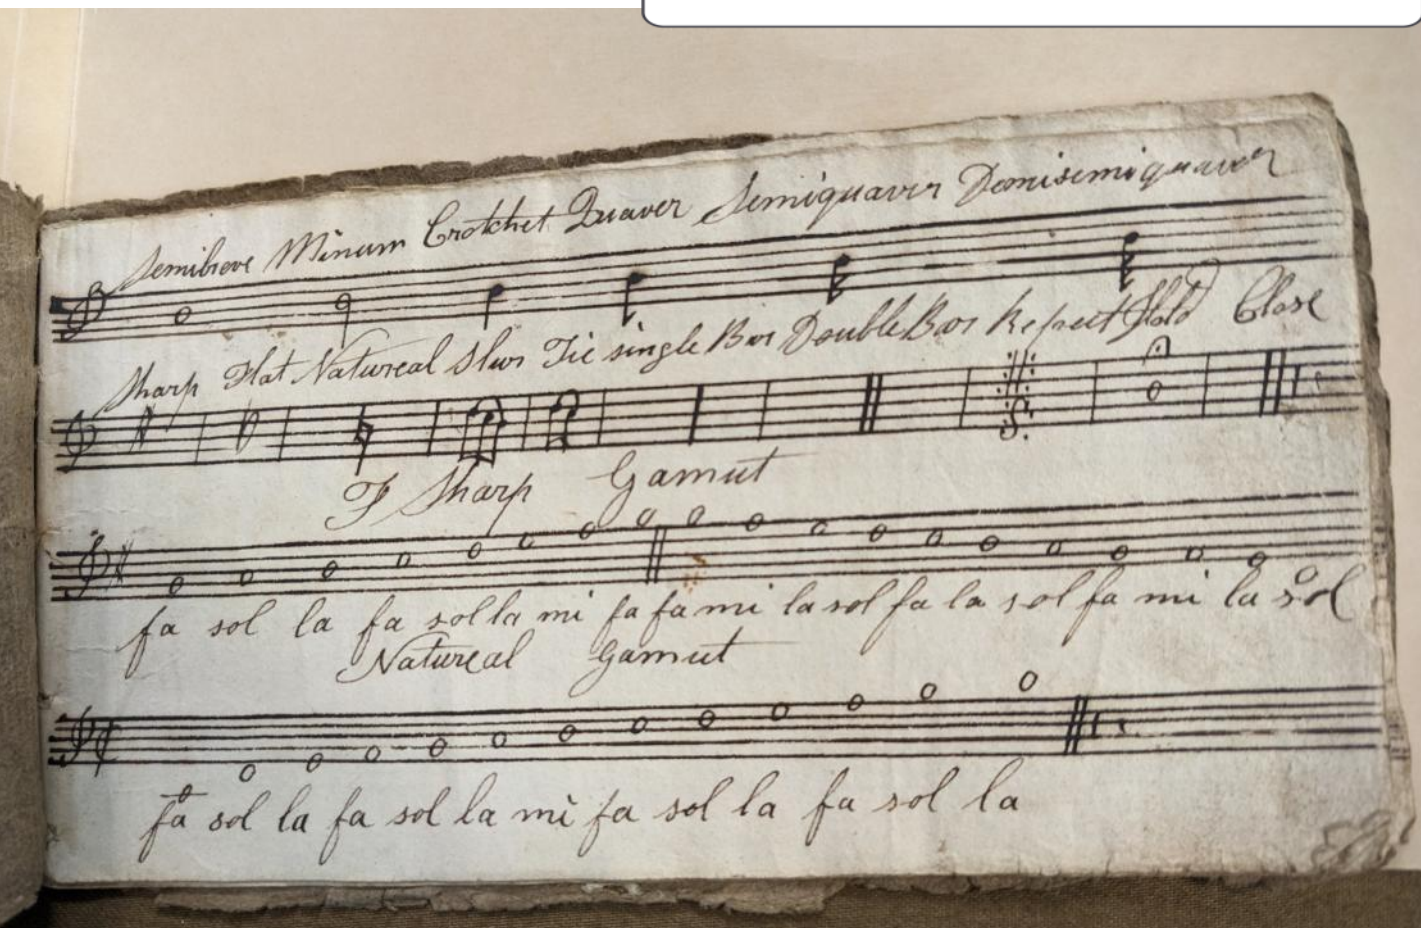 Semibreve Minum Crotchet Quaver Semiquaver Demisemiquaver
Sharp Flat Natureal Slur Tie single Bar Double Bar Repeat Hold Close
F Sharp Gamut
fa sol la fa sol la mi fa fa mi la sol fa la sol fa mi la sol
Natureal Gamut
fa sol la fa sol la mi fa sol la fa sol la